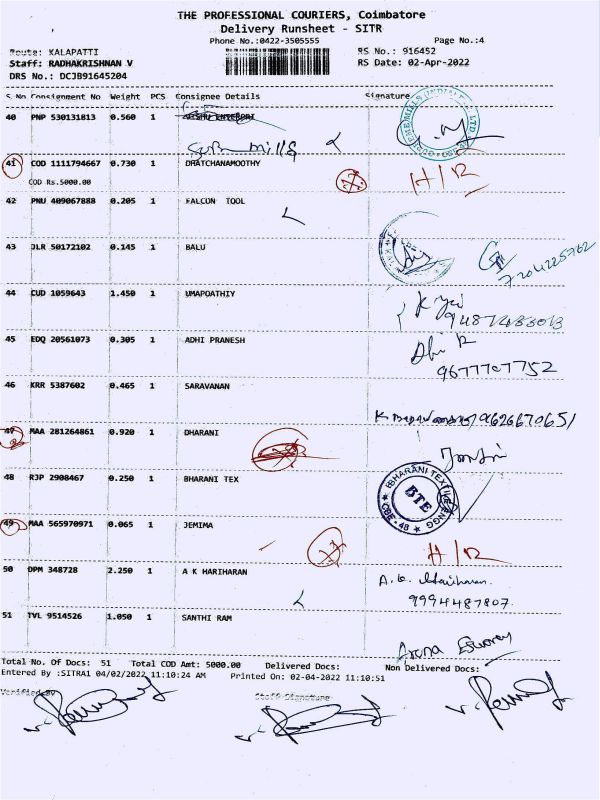 THE PROFESSIONAL COURIERS, Coimbatore
Delivery Runsheet - SITR
Phone No.:0422-3505555 Page No.:4
Route: KALAPATTI RS No.: 916452
Staff: RADHAKRISHNAN V RS Date: 02-Apr-2022
DRS No.: DCJB91645204
S.No Consignment No Weight PCS Consignee Details Signature
40 PNP 530131813 0.560 1
41 COD 1111794667 0.730 1 DHATCHANAMOOTHY H/R
COD Rs.5000.00
42 PNU 409067888 0.205 1 FALCON TOOL
43 JLR 50172102 0.145 1 BALU
7204225762
44 CUD 1059643 1.450 1 UMAPOATHIY
45 EDQ 20561073 0.305 1 ADHI PRANESH
9677707752
46 KRR 5387602 0.465 1 SARAVANAN
9626670651
47 MAA 281264861 0.920 1 DHARANI
48 RJP 2908467 0.250 1 BHARANI TEX
BHARANI TEX
BTE
CBE - 48
49 MAA 565970971 0.065 1 JEMIMA H/R
50 DPM 348728 2.250 1 A K HARIHARAN A.K. Hariharan
9994487807
51 TVL 9514526 1.050 1 SANTHI RAM
Aruna
Total No. Of Docs: 51 Total COD Amt: 5000.00 Delivered Docs: Non Delivered Docs:
Entered By :SITRA1 04/02/2022 11:10:24 AM Printed On: 02-04-2022 11:10:51
Verified By Staff Signature